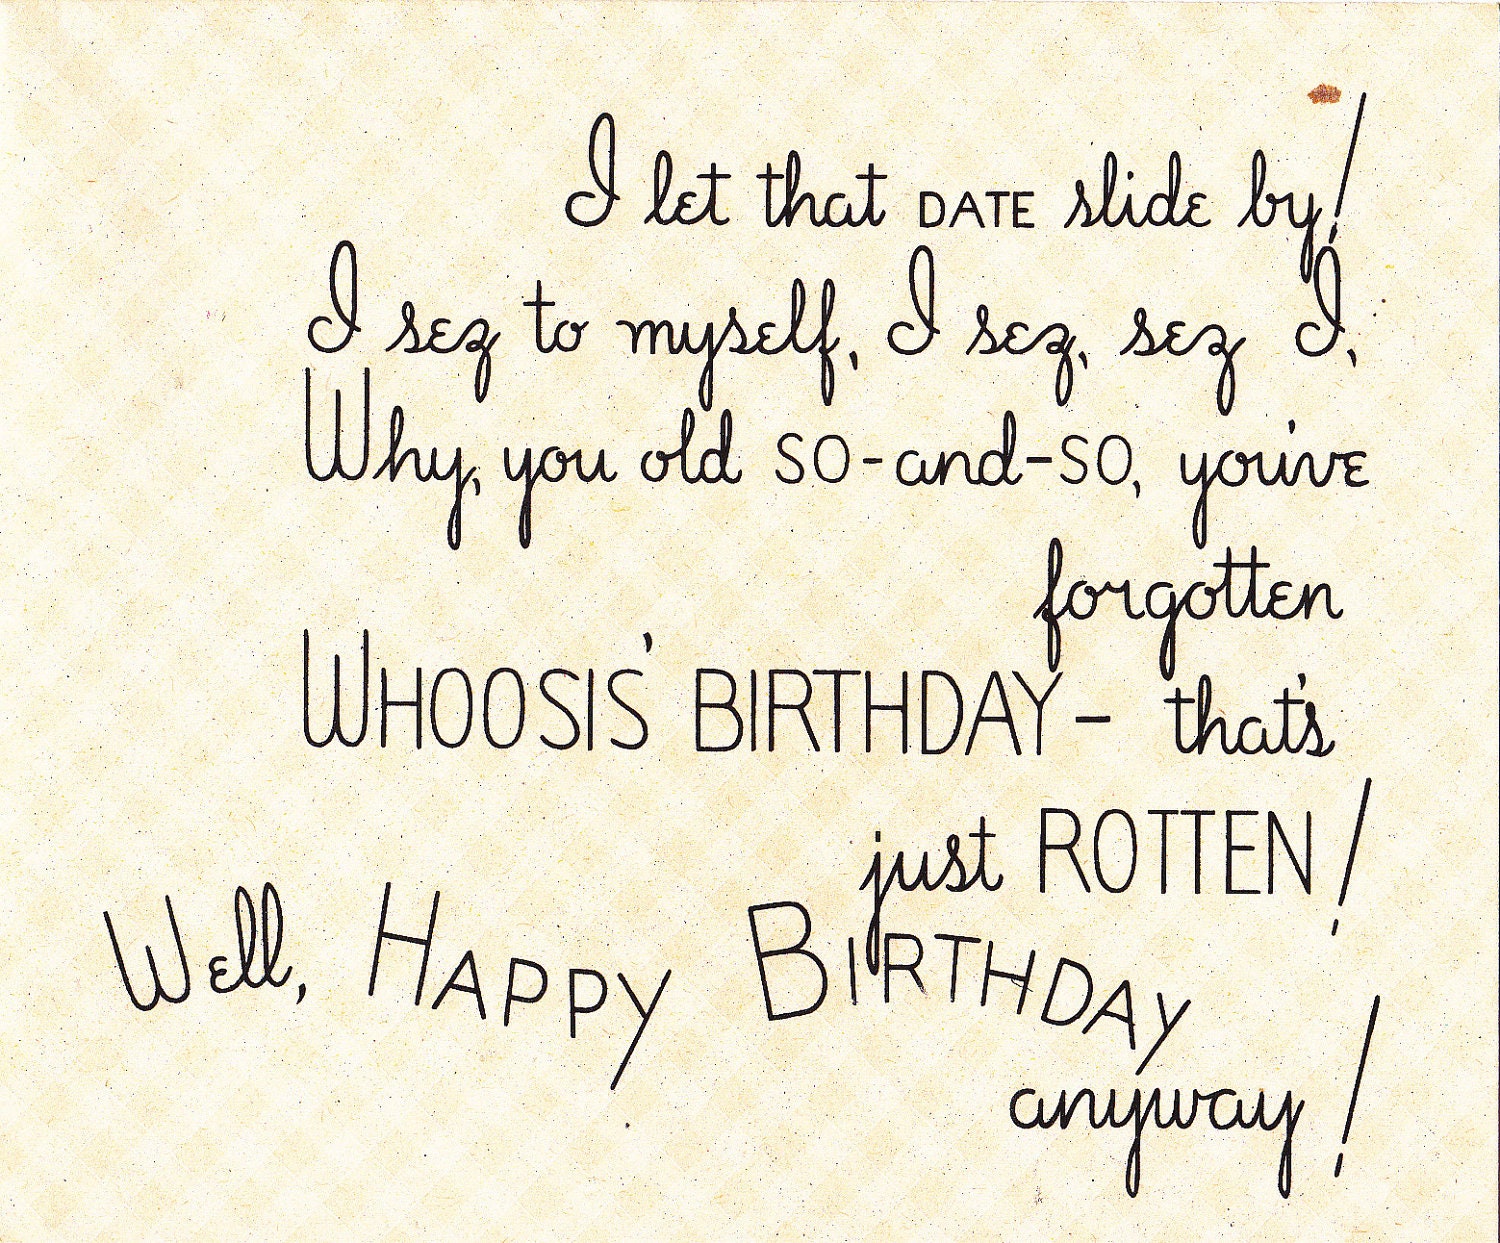 I let that DATE slide by!
I sez to myself, I sez, sez I,
Why, you old SO-and-SO, you've
forgotten
WHOOSIS' BIRTHDAY- that's
just ROTTEN!
Well, HAPPY BIRTHDAY
anyway!